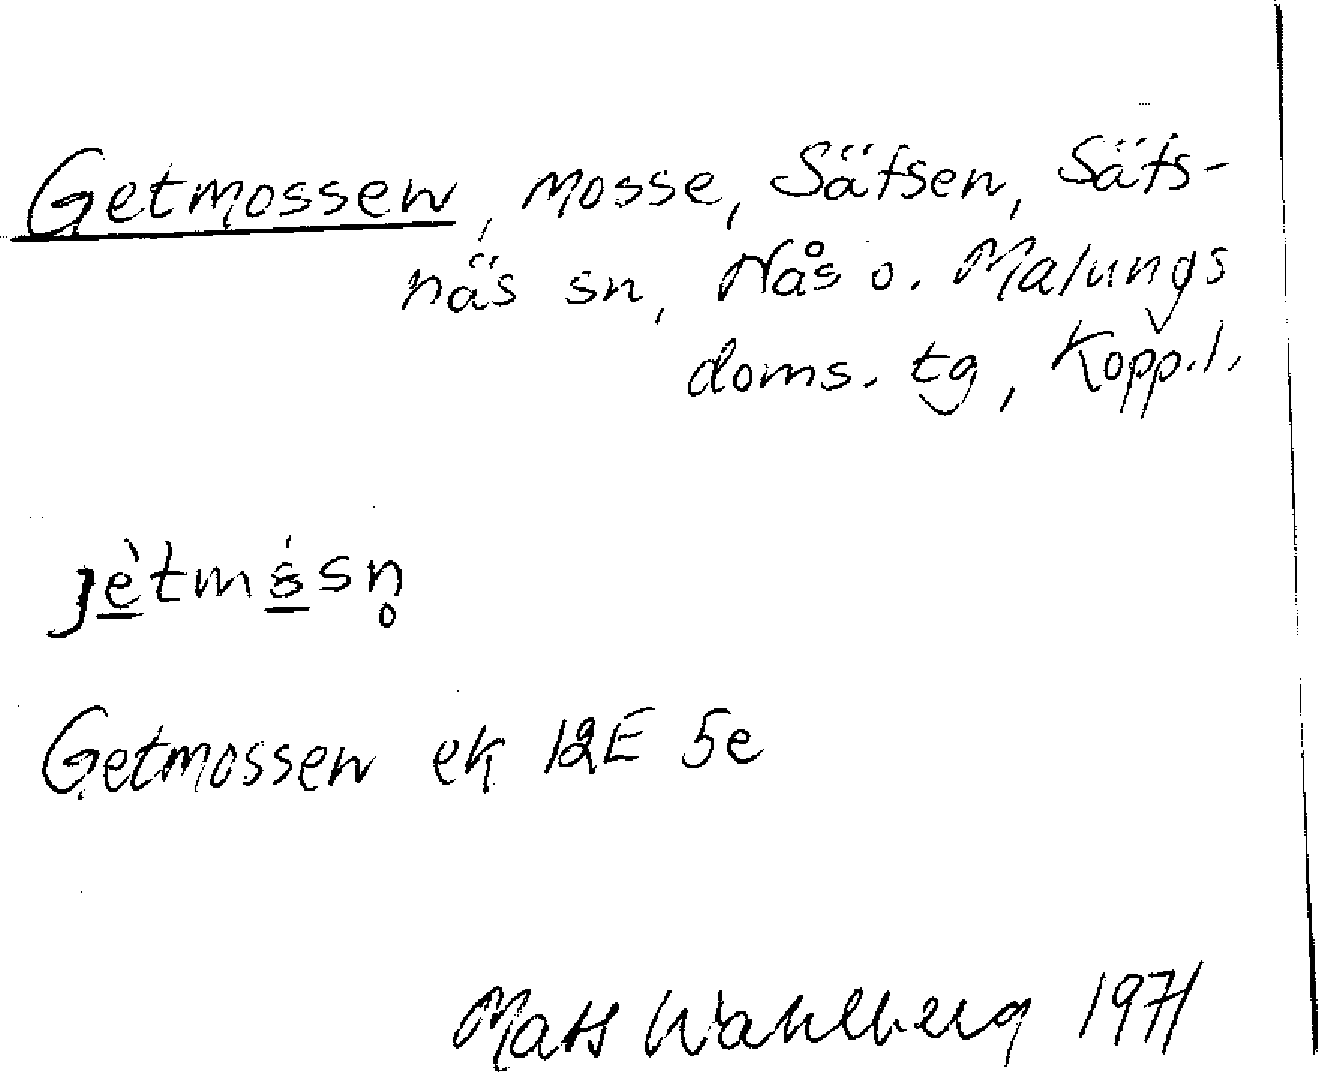 Getmossen, mosse, Säfsen, Säfs-
näs sn, Nås o. Malungs
doms. tg, Kopp.l.
jètmśsn̥
Getmossen ek 12E 5e
Mats Wahlberg 1971